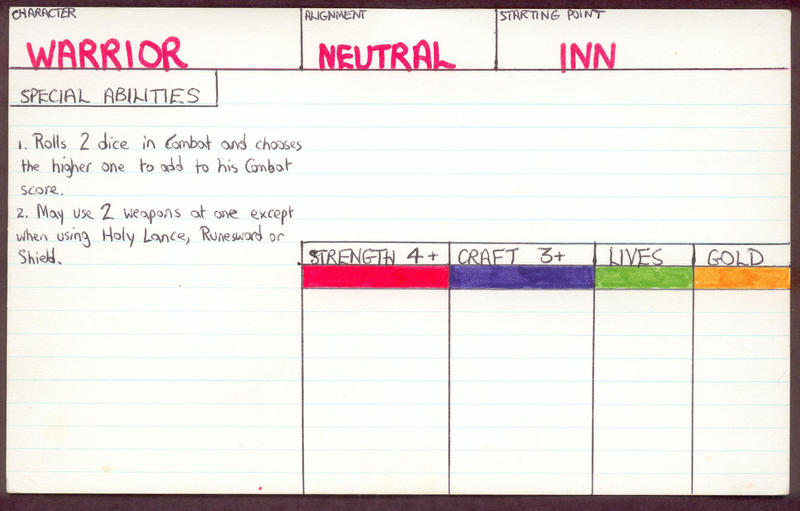 CHARACTER
ALIGNMENT
STARTING POINT
WARRIOR
NEUTRAL
INN
SPECIAL ABILITIES
1. Rolls 2 dice in Combat and chooses
the higher one to add to his Combat
score.
2. May use 2 weapons at one except
when using Holy Lance, Runesword or
Shield.
STRENGTH 4+
CRAFT 3+
LIVES
GOLD